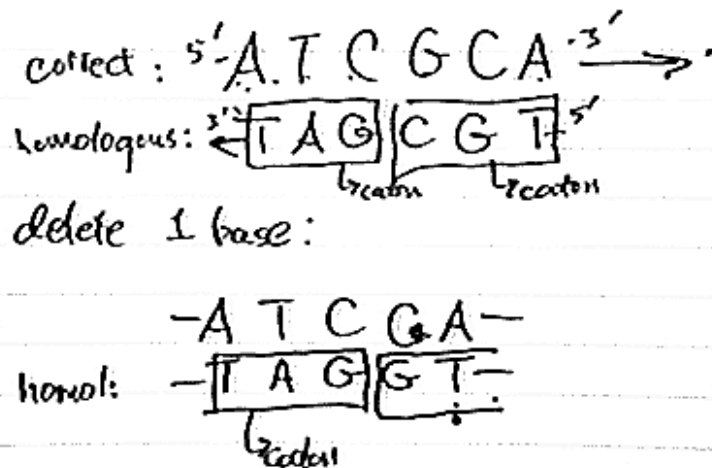 correct: 5'-A T C G C A-3'
homologous: 3'-T A G C G T-5'
codon codon
delete 1 base:
-A T C G A-
homol: -T A G G T-
codon